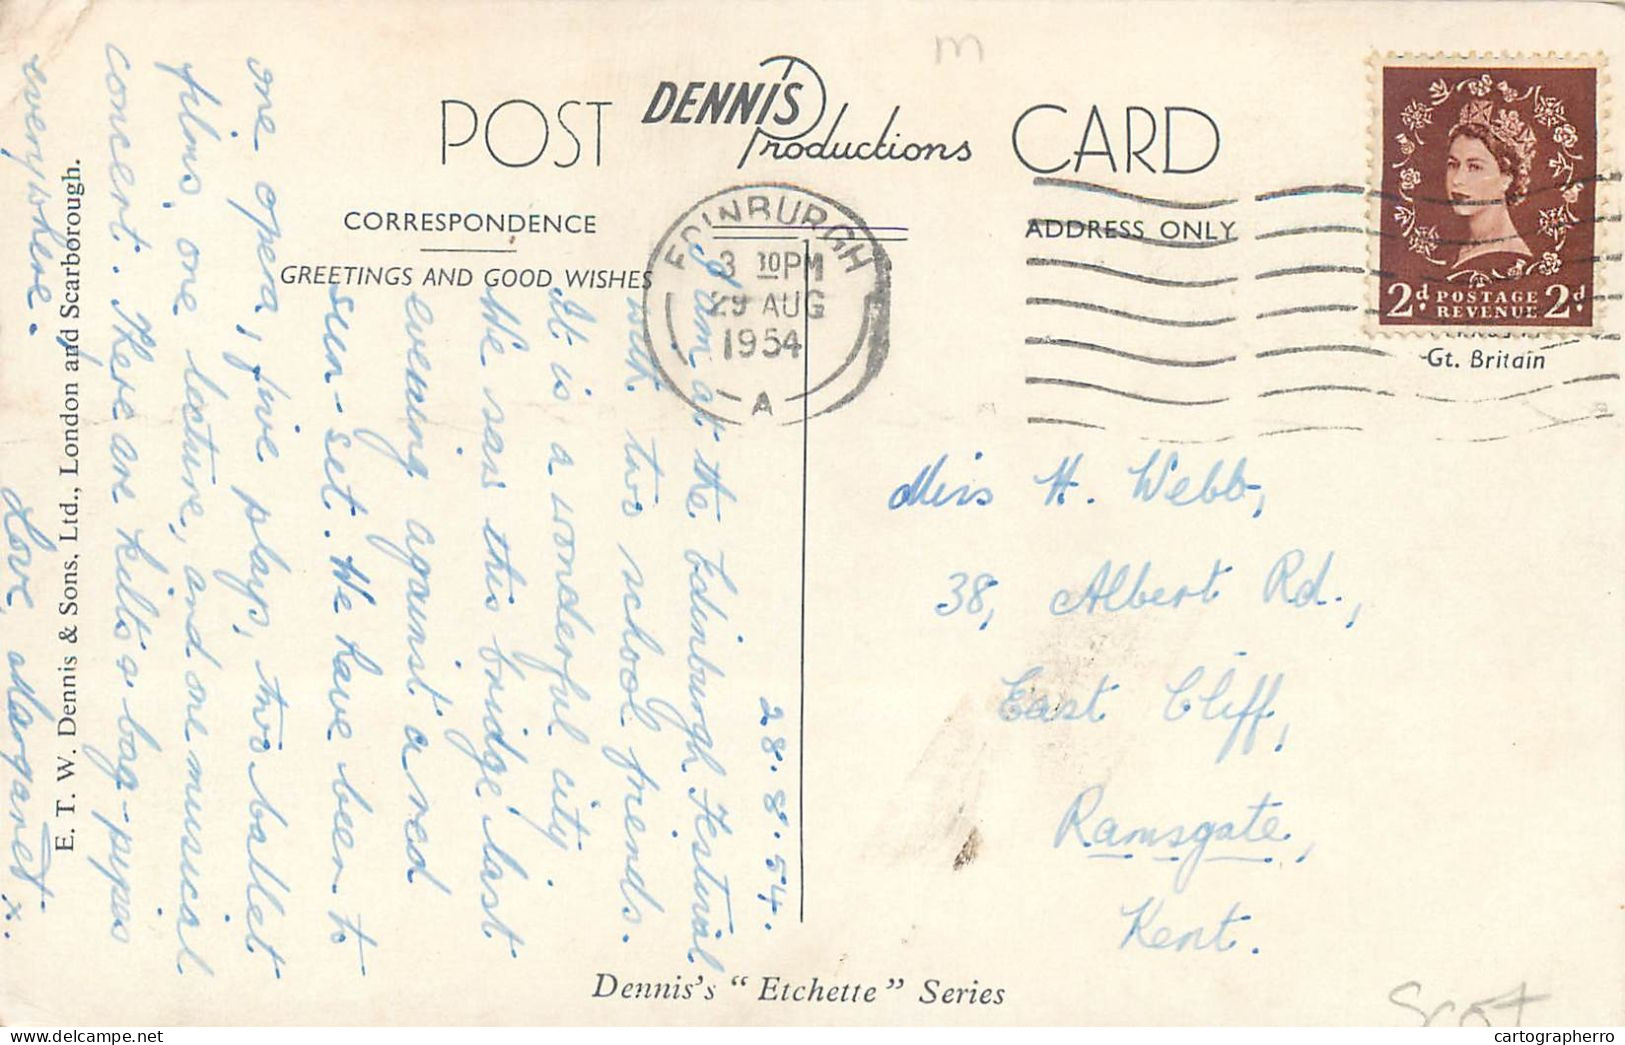 m
POST DENNIS Productions CARD
CORRESPONDENCE
GREETINGS AND GOOD WISHES
ADDRESS ONLY
EDINBURGH
3 30PM
29 AUG
1954
A
2d. POSTAGE REVENUE 2d.
Gt. Britain
28.8.54.
I am at the Edinburgh Festival
with two school friends.
It is a wonderful city.
We saw this bridge last
evening against a red
sun-set. We have been to
one opera, five plays, two ballet
films, one lecture, and one musical
concert. There are kilts & bag-pipes
everywhere.
Love, Margaret x.
Miss H. Webb,
38, Albert Rd.,
East Cliff,
Ramsgate,
Kent.
E. T. W. Dennis & Sons, Ltd., London and Scarborough.
Dennis's "Etchette" Series
Scot
cartographerro